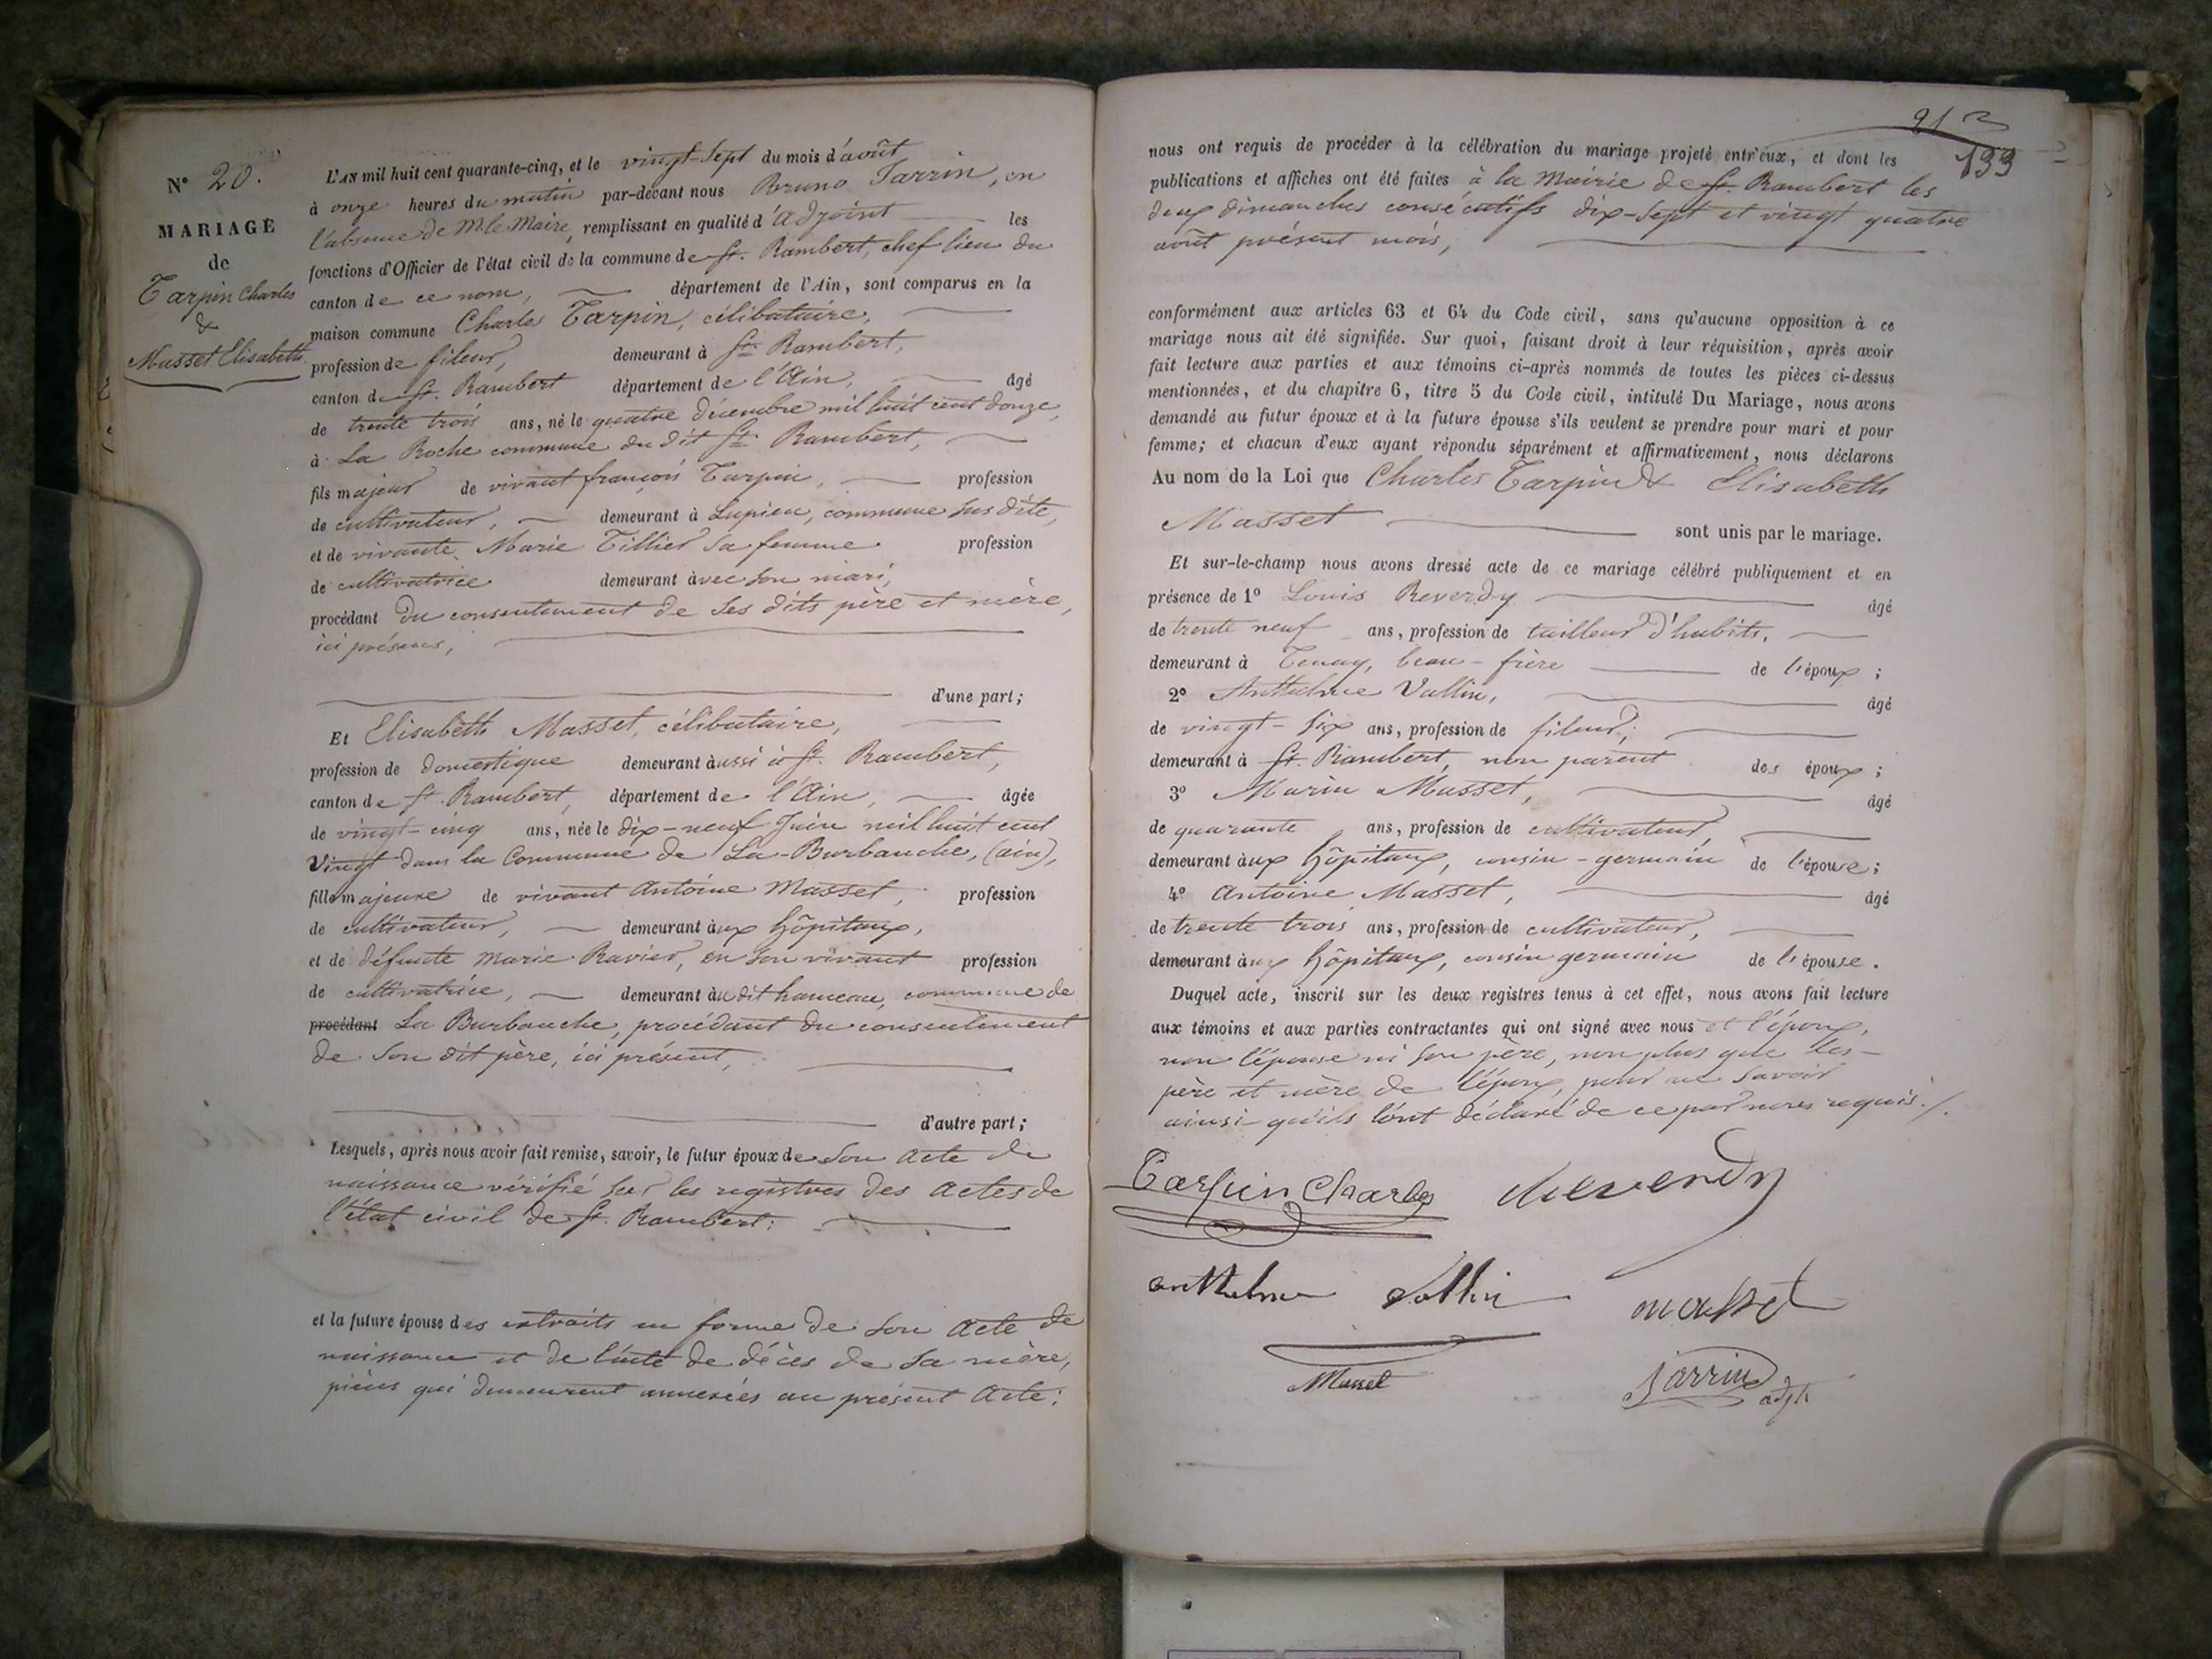 N° 20.
MARIAGE
de
Tarpin Charles
&
Masset Elisabeth.
L'AN mil huit cent quarante-cinq, et le vingt-sept du mois d'août
à onze heures du matin par-devant nous Bruno Jarrin, en
l'absence de M. le Maire, remplissant en qualité d'adjoint les
fonctions d'Officier de l'état civil de la commune de St. Rambert, chef lieu du
canton de ce nom, département de l'Ain, sont comparus en la
maison commune Charles Tarpin, célibataire,
profession de fileur, demeurant à St. Rambert,
canton de St. Rambert département de l'Ain, âgé
de trente trois ans, né le quatre décembre mil huit cent douze,
à La Roche commune du dit St. Rambert,
fils majeur de vivant françois Tarpin, profession
de cultivateur, demeurant à Lupieu, commune sus dite,
et de vivante Marie Tillier sa femme profession
de cultivatrice demeurant avec son mari,
procédant du consentement de ses dits père et mère,
ici présens,
d'une part;
Et Elisabeth Masset, célibataire,
profession de domestique demeurant aussi à St. Rambert,
canton de St. Rambert, département de l'Ain, âgée
de vingt-cinq ans, née le dix-neuf Juin mil huit cent
vingt dans la Commune de La Burbanche, (ain),
fille majeure de vivant Antoine Masset, profession
de cultivateur, demeurant aux hôpitaux,
et de défunte Marie Ravier, en son vivant profession
de cultivatrice, demeurant au dit hameau, commune de
procédant La Burbanche, procédant du consentement
de son dit père, ici présent,
d'autre part;
Lesquels, après nous avoir fait remise, savoir, le futur époux de son acte de
naissance vérifié sur les registres des actes de
l'état civil de St. Rambert;
et la future épouse des extraits en forme de son acte de
naissance et de l'acte de décès de sa mère,
pièces qui demeurent annexées au présent acte;
212
133
nous ont requis de procéder à la célébration du mariage projeté entr'eux, et dont les
publications et affiches ont été faites à la Mairie de St. Rambert les
deux dimanches consécutifs dix-sept et vingt quatre
août présent mois,
conformément aux articles 63 et 64 du Code civil, sans qu'aucune opposition à ce
mariage nous ait été signifiée. Sur quoi, faisant droit à leur réquisition, après avoir
fait lecture aux parties et aux témoins ci-après nommés de toutes les pièces ci-dessus
mentionnées, et du chapitre 6, titre 5 du Code civil, intitulé Du Mariage, nous avons
demandé au futur époux et à la future épouse s'ils veulent se prendre pour mari et pour
femme; et chacun d'eux ayant répondu séparément et affirmativement, nous déclarons
Au nom de la Loi que Charles Tarpin & Elisabeth
Masset sont unis par le mariage.
Et sur-le-champ nous avons dressé acte de ce mariage célébré publiquement et en
présence de 1° Louis Reverdy âgé
de trente neuf ans, profession de tailleur d'habits,
demeurant à Tenay, beau-frère de l'époux;
2° Anthelme Vallin, âgé
de vingt-six ans, profession de fileur,
demeurant à St. Rambert, non parent des époux;
3° Marin Masset, âgé
de quarante ans, profession de cultivateur,
demeurant aux hôpitaux, cousin-germain de l'épouse;
4° Antoine Masset, âgé
de trente trois ans, profession de cultivateur,
demeurant aux hôpitaux, cousin germain de l'épouse.
Duquel acte, inscrit sur les deux registres tenus à cet effet, nous avons fait lecture
aux témoins et aux parties contractantes qui ont signé avec nous et l'époux,
non l'épouse ni son père, non plus que les
père et mère de l'époux, pour ne savoir
ainsi qu'ils l'ont déclaré de ce par nous requis./.
Tarpin Charles Reverdy
anthelme Vallin masset
Masset Jarrin adjt